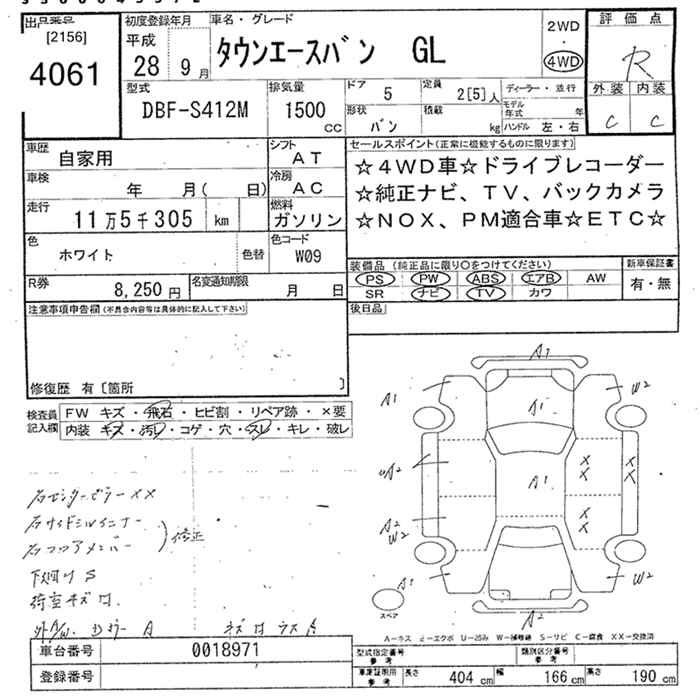 出品番号 初度登録年月 車名・グレード 評価点
[2156] 平成 タウンエースバン GL 2WD
4061 28 9月 4WD R
型式 排気量 ドア 5 定員 2[5]人 ディーラー・並行 外装 内装
DBF-S412M 1500 CC 形状 バン 積載 kg モデル年式 年 ハンドル 左・右 C C
車歴 自家用 シフト AT セールスポイント(正常に機能するものに限ります)
車検 年 月( 日) 冷房 AC ☆4WD車☆ドライブレコーダー
走行 11万5千305 km 燃料 ガソリン ☆純正ナビ、TV、バックカメラ
☆NOX、PM適合車☆ETC☆
色 ホワイト 色替 色コード W09
装備品(純正品に限り○をつけてください) 新車保証書
R券 8,250円 名変通知期限 月 日 PS PW ABS エアB AW 有・無
SR ナビ TV カワ
注意事項申告欄(不具合内容等は具体的に記入して下さい) 後日品
修復歴 有〔箇所 〕
検査員 FW キズ・飛石・ヒビ割・リペア跡・×要
記入欄 内装 キズ・汚レ・コゲ・穴・スレ・キレ・破レ
A1
A1 A1 W2
A2 A1 X X X X
A2 W2 X X
A1 W2
A2
右センターピラーXX
右サイドシルインナー
右フロアメンバー 修正
下廻り S
荷室キズ汚
スペア
A-キズ E-エクボ U-凹み W-補修跡 S-サビ C-腐食 XX-交換済
車台番号 0018971 型式指定番号 参考 類別区分番号 参考
登録番号 車庫証明用 参考 長さ 404 cm 幅 166 cm 高さ 190 cm